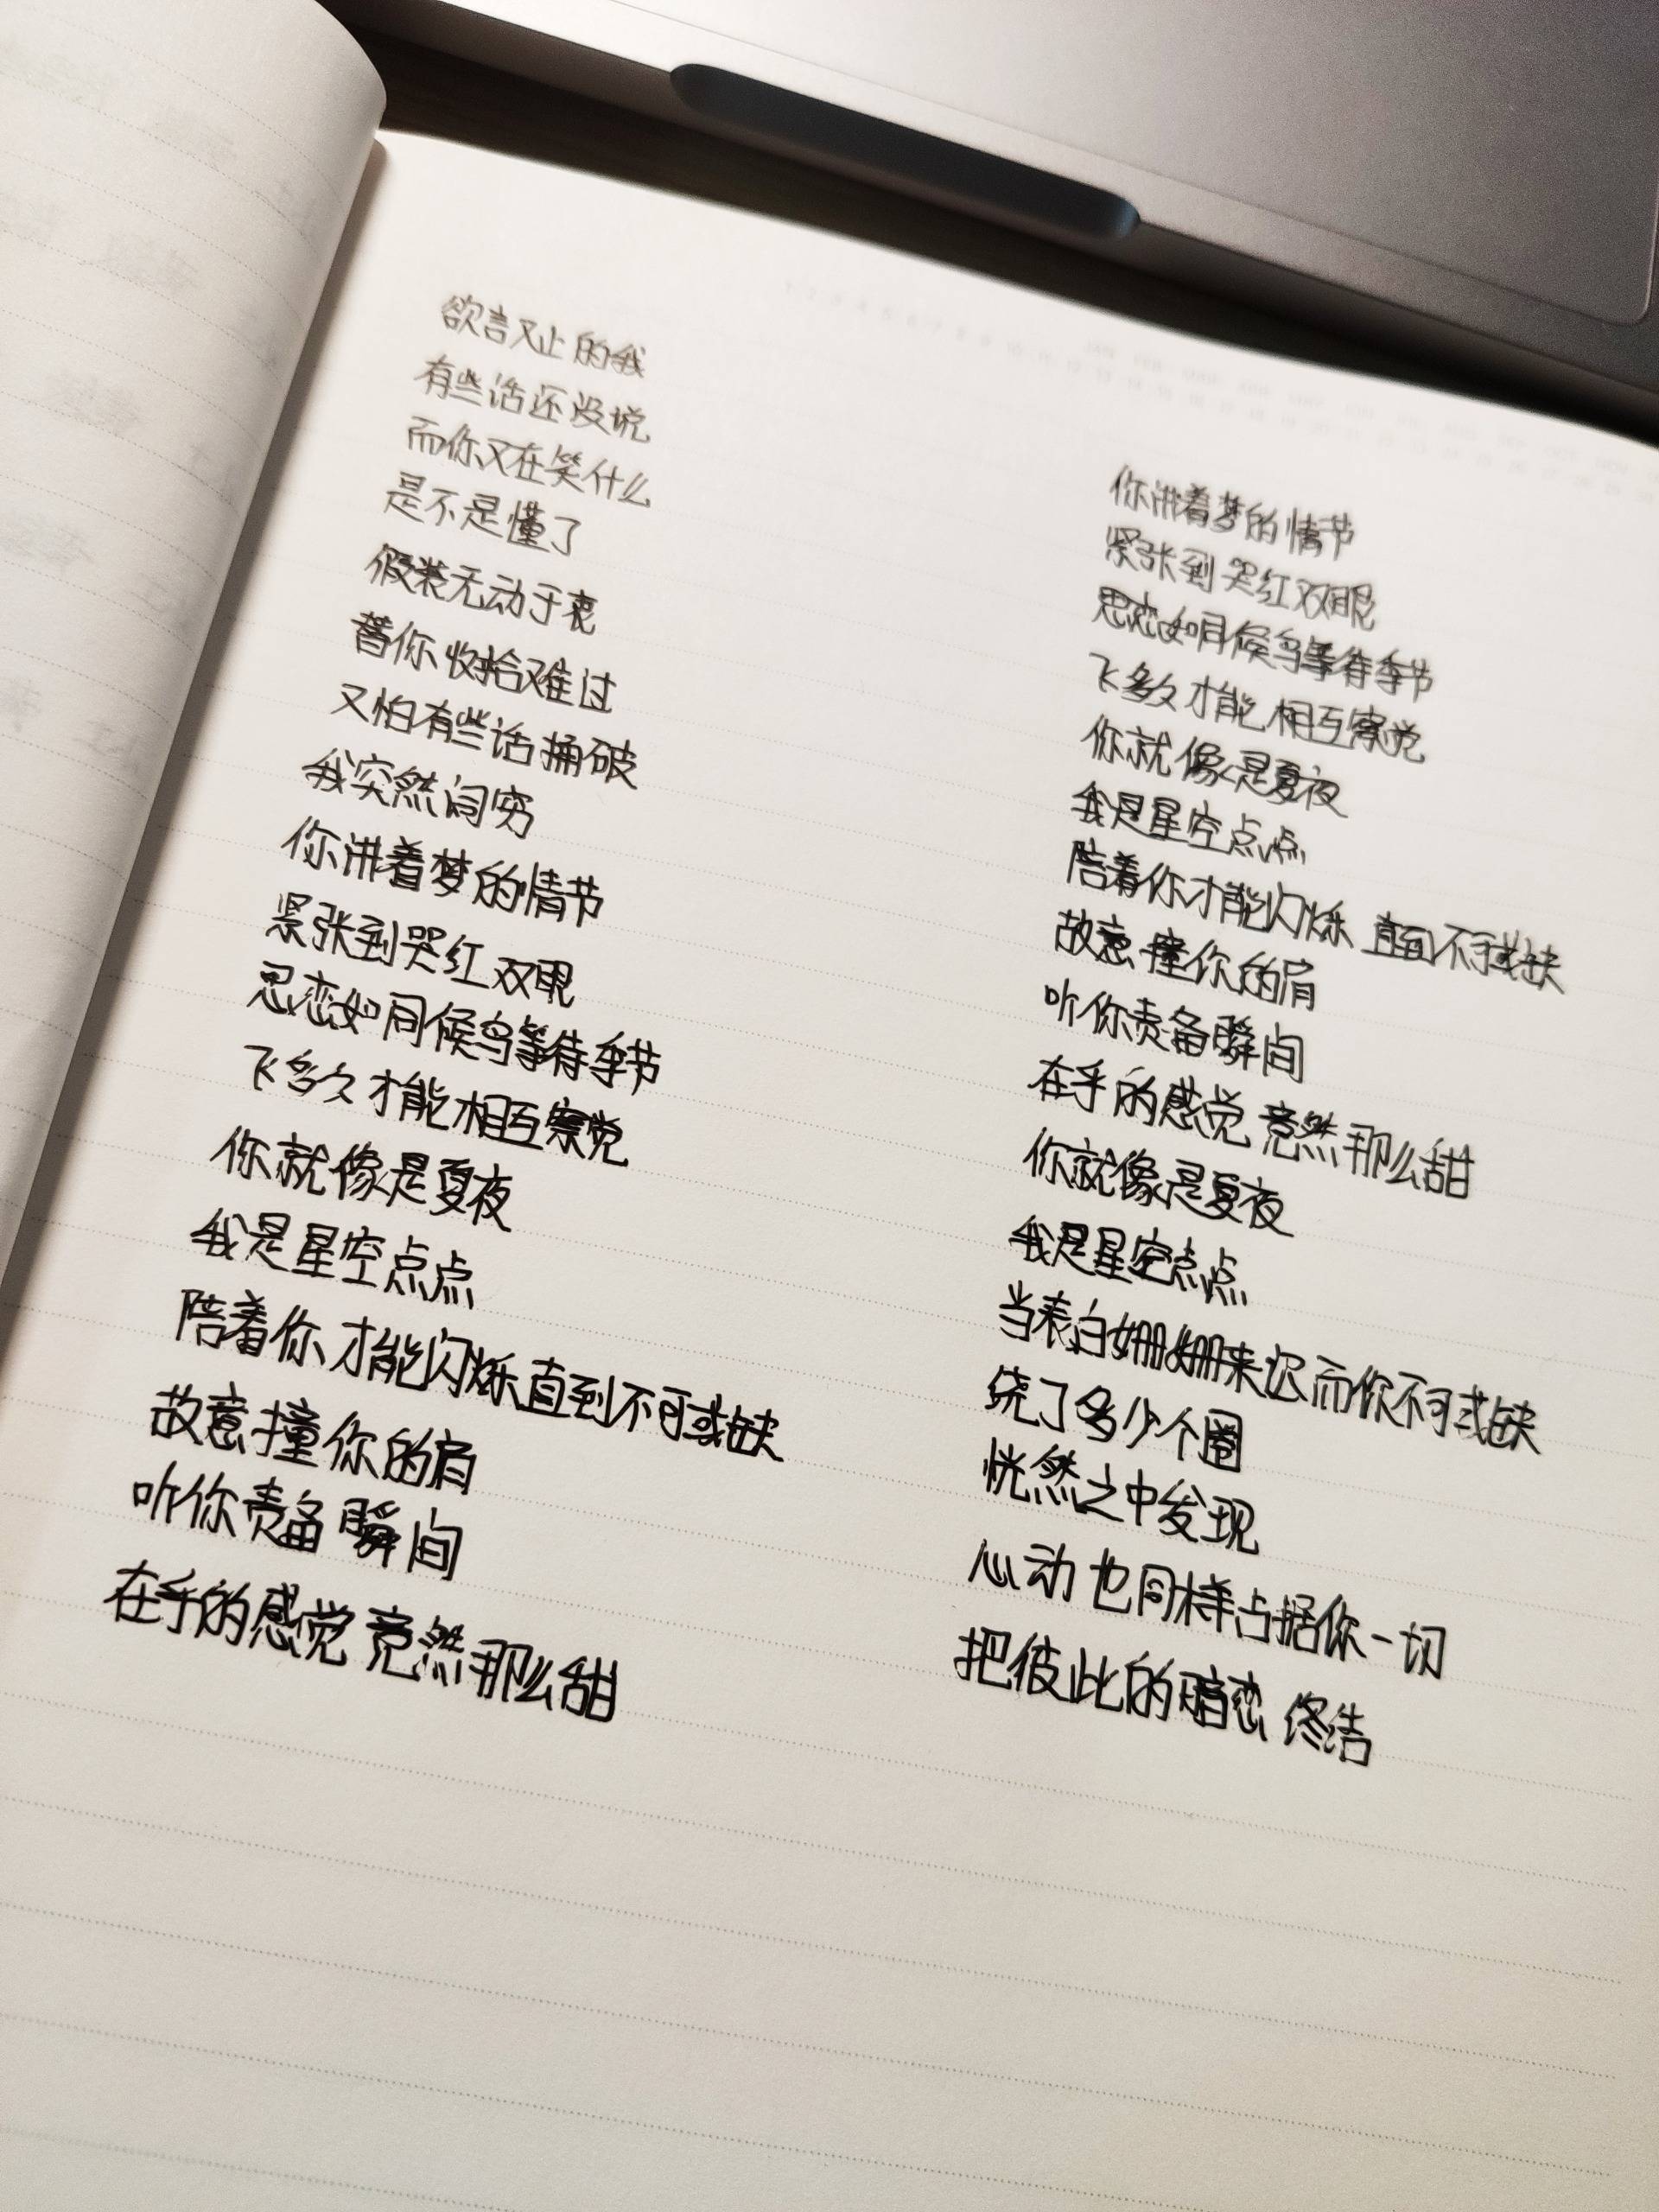 欲言又止的我
有些话还没说
而你又在笑什么
是不是懂了
假装无动于衷
替你收拾难过
又怕有些话捅破
我突然词穷
你讲着梦的情节
紧张到哭红双眼
思恋如同候鸟等待季节
飞多久才能相互察觉
你就像是夏夜
我是星空点点
陪着你才能闪烁 直到不可或缺
故意撞你的肩
听你责备瞬间
在乎的感觉 竟然那么甜
你讲着梦的情节
紧张到哭红双眼
思恋如同候鸟等待季节
飞多久才能相互察觉
你就像是夏夜
我是星空点点
陪着你才能闪烁 直到不可或缺
故意撞你的肩
听你责备瞬间
在乎的感觉 竟然那么甜
你就像是夏夜
我是星空点点
当表白姗姗来迟 而你不可或缺
绕了多少个圈
恍然之中发现
心动也同样占据你一切
把彼此的暗恋 终结